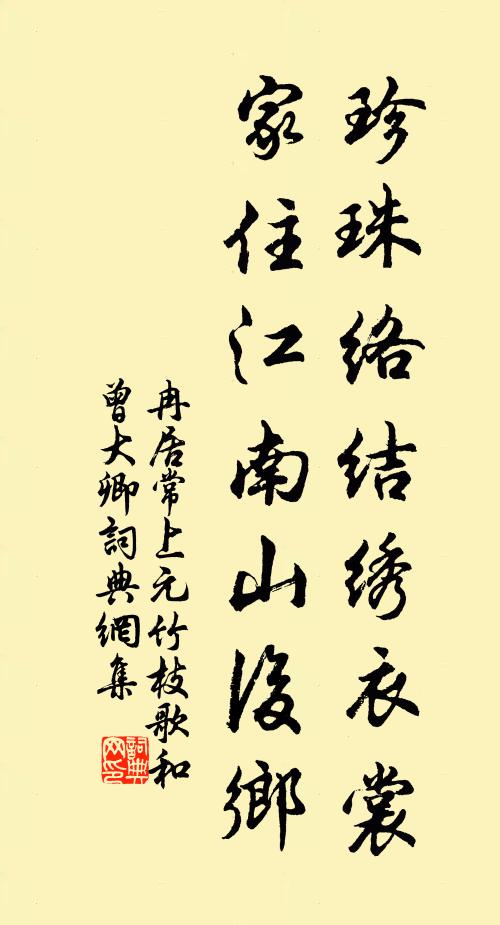 珍珠络结绣衣裳
家住江南山後鄉
冉居常上元竹枝歌和
曾大卿詞典網集
詞典
网印